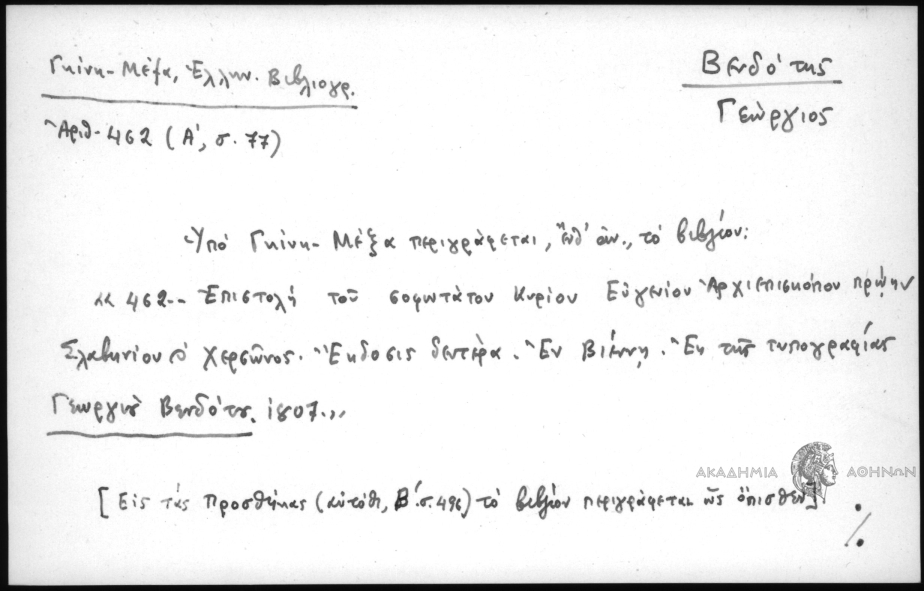 Γκίνη-Μέξα, Ἑλλην. Βιβλιογρ.
Ἀριθ. 462 (Α', σ. 77)
Βενδότης
Γεώργιος
Ὑπό Γκίνη-Μέξα περιγράφεται, ἔνθ' ἀν., τό βιβλίον:
«462.- Ἐπιστολή τοῦ σοφωτάτου Κυρίου Εὐγενίου Ἀρχιεπισκόπου πρῴην
Σλαβηνίου Χερσῶνος. Ἔκδοσις δευτέρα. Ἐν Βιέννῃ. Ἐκ τῆς τυπογραφίας
Γεωργίου Βενδότου. 1807.»
[Εἰς τάς Προσθήκας (αὐτόθι, Β' σ. 496) τό βιβλίον περιγράφεται ὡς ὄπισθεν].
./.
ΑΚΑΔΗΜΙΑ ΑΘΗΝΩΝ